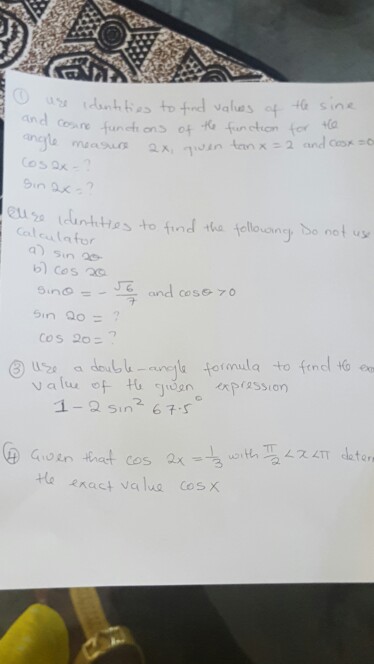 ① Use identities to find values of the sine
and cosine functions of the function for the
angle measure 2x, given tan x = 2 and cosx
cos 2x = ?
sin 2x = ?
② Use identities to find the following. Do not use
calculator
a) sin 2θ
b) cos 2θ
sinθ = - √6/7 and cosθ > 0
sin 2θ = ?
cos 2θ = ?
③ Use a double-angle formula to find the
value of the given expression
1 - 2 sin² 67.5°
④ Given that cos 2x = 1/3 with π/2 < x < π deter
the exact value cos x